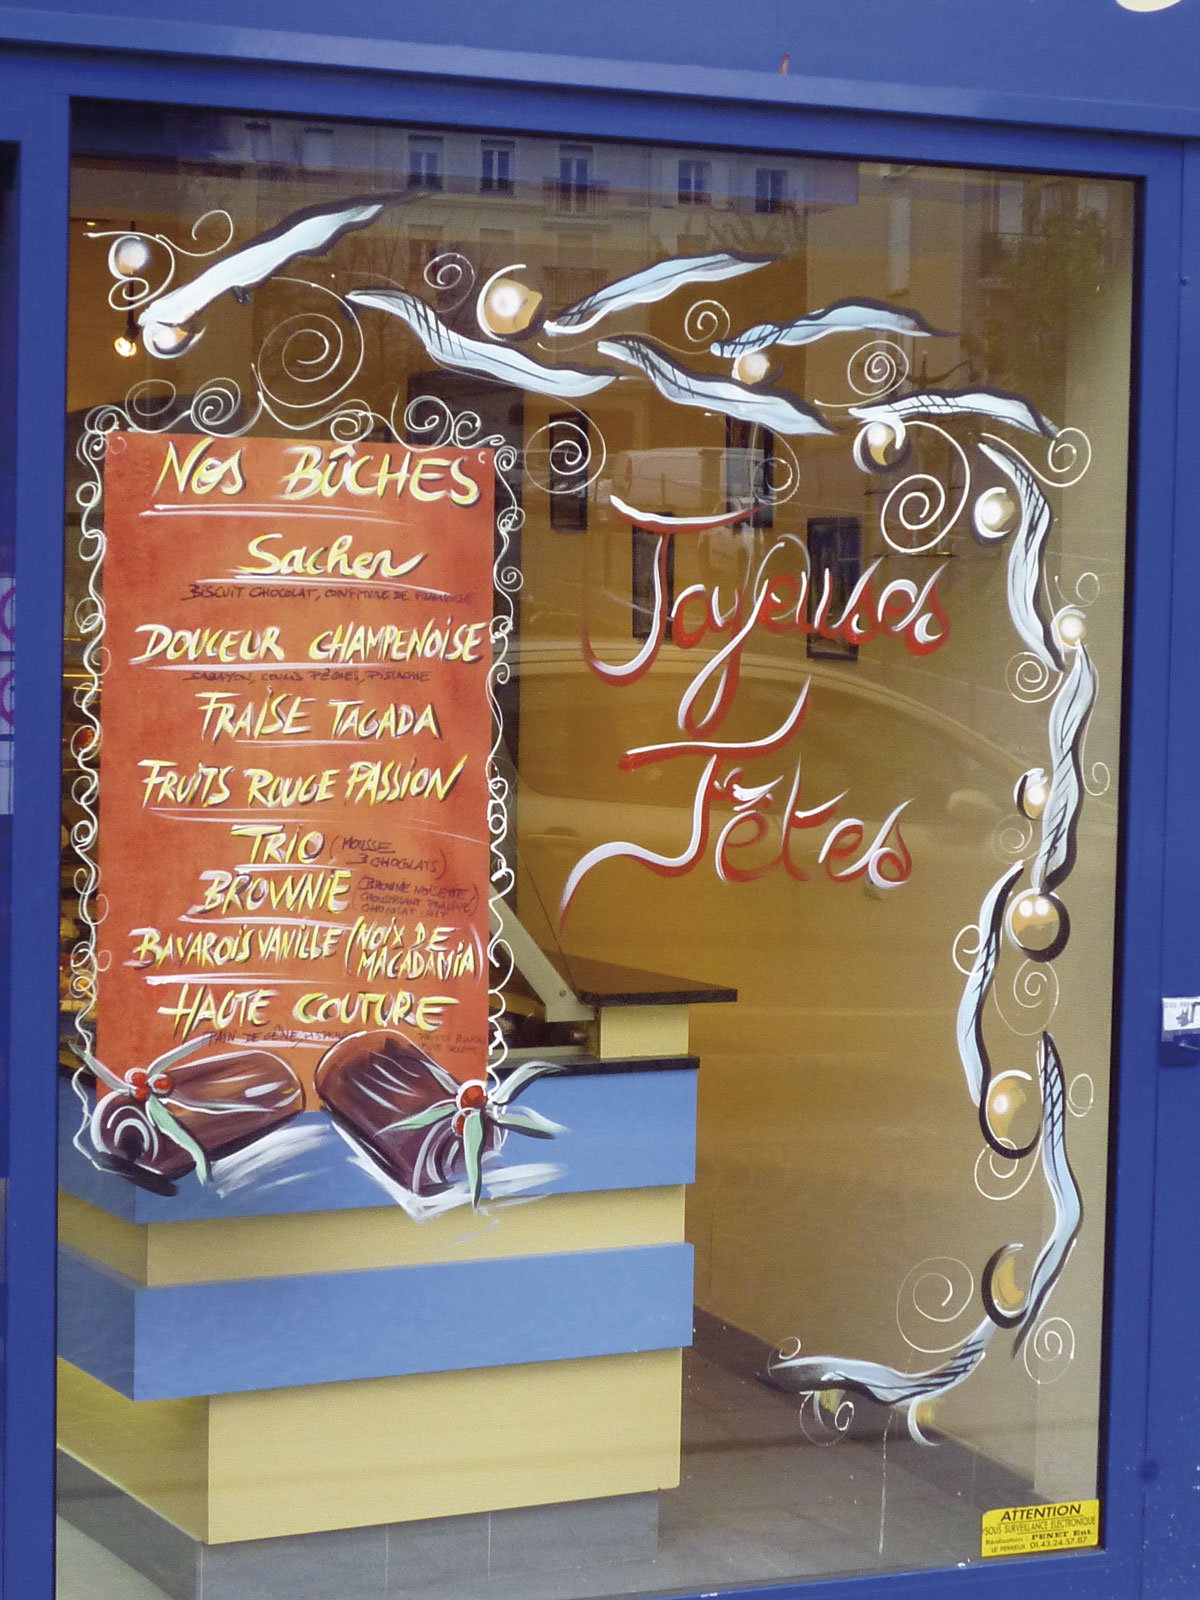 NOS BÛCHES
Sacher
BISCUIT CHOCOLAT, CONFITURE DE FRAMBOISE
DOUCEUR CHAMPENOISE
SABAYON, COULIS PÊCHES, PISTACHE
FRAISE TAGADA
FRUITS ROUGE PASSION
TRIO (MOUSSE
3 CHOCOLATS)
BROWNIE (BROWNIE NOISETTE,
CROUSTILLANT PRALINÉ
CHOCOLAT LAIT
BAVAROIS VANILLE (NOIX DE
MACADAMIA)
HAUTE COUTURE
PAIN DE GÊNE, FRUITS ROUGES
VIOLETTE
Joyeuses
Fêtes
ATTENTION
SOUS SURVEILLANCE ELECTRONIQUE
Réalisation: PENET Ent.
LE PERREUX. 01.43.24.57.87